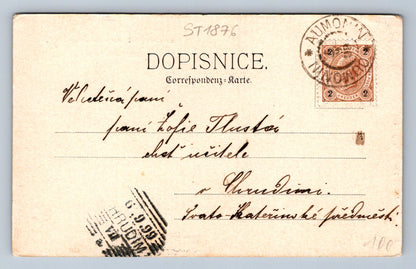 ST1876
DOPISNICE.
Correspondenz-Karte.
AUMONÍN
2 2
2 2
Velectěná paní
paní Žofie Tlustá
choť učitele
v Chrudimi.
Svato-Kateřinské předměstí
6·9·99
CHRUDIM
100